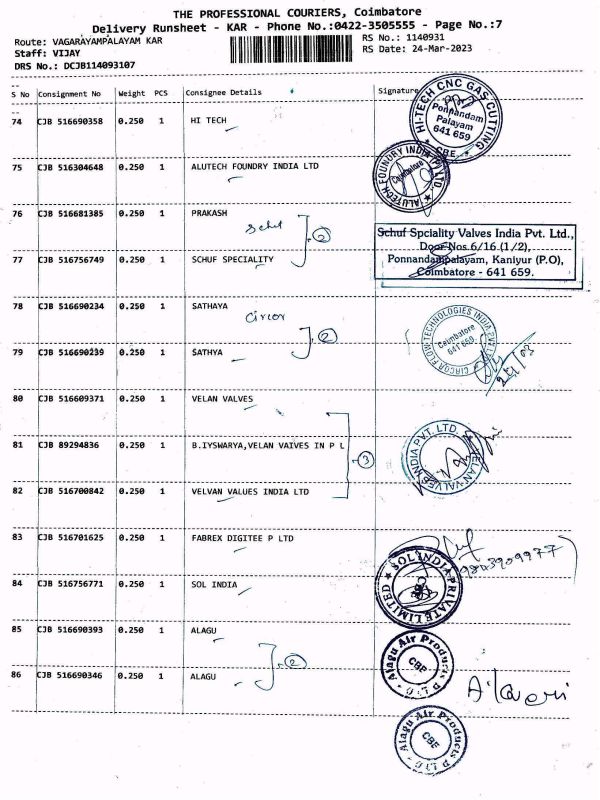 THE PROFESSIONAL COURIERS, Coimbatore
Delivery Runsheet - KAR - Phone No.:0422-3505555 - Page No.:7
Route: VAGARAYAMPALAYAM KAR
RS No.: 1140931
Staff: VIJAY
RS Date: 24-Mar-2023
DRS No.: DCJB114093107
S No Consignment No Weight PCS Consignee Details Signature
74 CJB 516690358 0.250 1 HI TECH
HI-TECH CNC GAS CUTTING
Ponnandam
Palayam
641 659
CBE
75 CJB 516304648 0.250 1 ALUTECH FOUNDRY INDIA LTD
ALUTECH FOUNDRY INDIA P LTD.
Coimbatore
76 CJB 516681385 0.250 1 PRAKASH
Schuf
2
Schuf Spciality Valves India Pvt. Ltd.,
Door Nos 6/16 (1/2),
Ponnandampalayam, Kaniyur (P.O),
Coimbatore - 641 659.
77 CJB 516756749 0.250 1 SCHUF SPECIALITY
78 CJB 516690234 0.250 1 SATHAYA
Circor
2
CIRCOR FLOW TECHNOLOGIES INDIA PVT LTD
Coimbatore
641 659
79 CJB 516690239 0.250 1 SATHYA
80 CJB 516609371 0.250 1 VELAN VALVES
81 CJB 89294836 0.250 1 B.IYSWARYA,VELAN VAIVES IN P L
3
VELAN VALVES INDIA PVT. LTD.
82 CJB 516700842 0.250 1 VELVAN VALUES INDIA LTD
83 CJB 516701625 0.250 1 FABREX DIGITEE P LTD
9803909977
84 CJB 516756771 0.250 1 SOL INDIA
SOL INDIA PRIVATE LIMITED
85 CJB 516690393 0.250 1 ALAGU
2
Alagu Air Products P LTD
CBE
86 CJB 516690346 0.250 1 ALAGU
Alagu Air Products P LTD
CBE